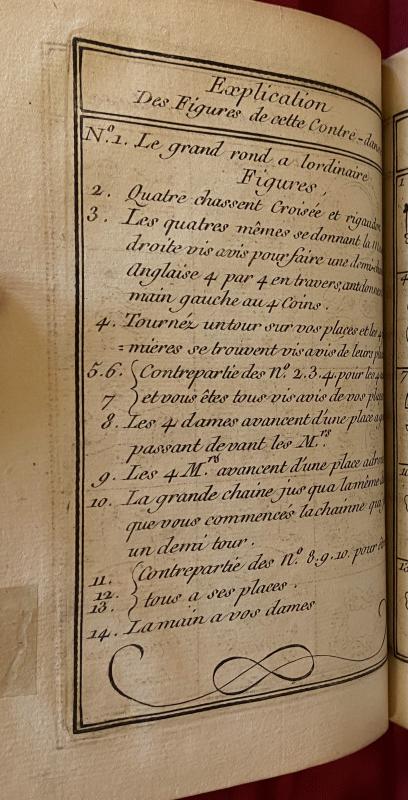 Explication
Des Figures de cette Contre-danse
N.º 1. Le grand rond a lordinaire
Figures,
2. Quatre chassent Croisée et rigaudon
3. Les quatres mêmes se donnant la
droite vis avis pour faire une demi
Anglaise 4 par 4 en travers,
main gauche au 4 Coins.
4. Tournéz un tour sur vos places et les
=mieres se trouvent vis avis de leurs
5.6. { Contrepartie des N.º 2.3.4. pour les
7 } et vous êtes tous vis avis de vos
8. Les 4 dames avancent d'une place a
passant devant les M.rs
9. Les 4 M.rs avancent d'une place
10. La grande chaine jus qua la même
que vous commencés la chainne
un demi tour.
11. { Contrepartie des N.º 8.9.10. pour
12.
13. } tous a ses places.
14. La main a vos dames